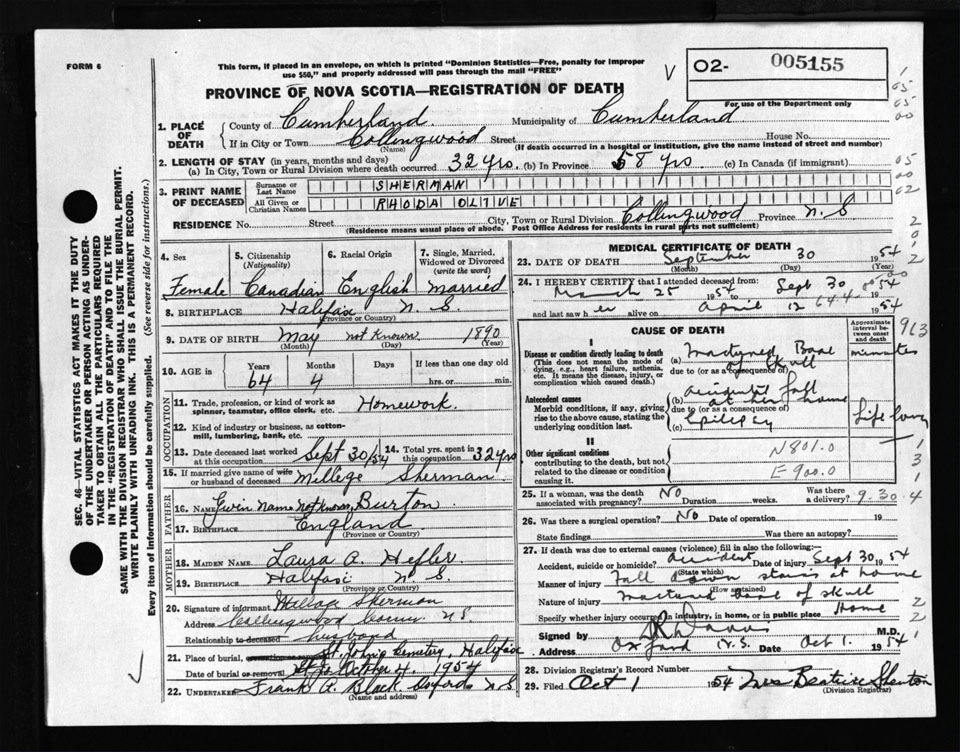 FORM 6
This form, if placed in an envelope, on which is printed "Dominion Statistics—Free, penalty for improper
use $50," and properly addressed will pass through the mail "FREE"
V
O2- 005155
For use of the Department only
PROVINCE OF NOVA SCOTIA—REGISTRATION OF DEATH
1. PLACE OF DEATH
County of Cumberland Municipality of Cumberland
If in City or Town Collingwood Street House No.
(Name) (If death occurred in a hospital or institution, give the name instead of street and number)
2. LENGTH OF STAY (in years, months and days)
(a) In City, Town or Rural Division where death occurred 32 yrs. (b) In Province 58 yrs (c) In Canada (if immigrant)
3. PRINT NAME OF DECEASED
Surname or Last Name SHERMAN
All Given or Christian Names RHODA OLIVE
RESIDENCE No. Street City, Town or Rural Division Collingwood Province N. S.
(Residence means usual place of abode. Post Office Address for residents in rural parts not sufficient)
4. Sex 5. Citizenship (Nationality) 6. Racial Origin 7. Single, Married, Widowed or Divorced (write the word)
Female Canadian English married
8. BIRTHPLACE Halifax N. S.
(Province or Country)
9. DATE OF BIRTH May not known 1890
(Month) (Day) (Year)
10. AGE in Years Months Days If less than one day
64 4 hrs. or min.
OCCUPATION
11. Trade, profession, or kind of work as spinner, teamster, office clerk, etc. Homework.
12. Kind of industry or business, as cotton-mill, lumbering, bank, etc.
13. Date deceased last worked at this occupation Sept 30/54 14. Total yrs. spent in this occupation 32 yrs
15. If married give name of wife or husband of deceased Millege Sherman
FATHER
16. Name Given name not known Burton
17. BIRTHPLACE England
(Province or Country)
MOTHER
18. MAIDEN NAME Laura A. Hefler
19. BIRTHPLACE Halifax N. S.
(Province or Country)
20. Signature of informant Millage Sherman
Address Collingwood Corner N S
Relationship to deceased husband
21. Place of burial, St. John's Cemetery, Halifax
Date of burial or removal October 4, 1954
22. Undertaker Frank A. Black. Oxford N S
(Name and address)
MEDICAL CERTIFICATE OF DEATH
23. DATE OF DEATH September 30 1954
(Month) (Day) (Year)
24. I HEREBY CERTIFY that I attended deceased from:
March 25 1954 to Sept 30 1954
and last saw her alive on April 12 1954
CAUSE OF DEATH
Approximate interval between onset and death
913
I
Disease or condition directly leading to death
(This does not mean the mode of dying, e.g., heart failure, asthenia, etc. It means the disease, injury, or complication which caused death.)
(a) Fractured Base of skull minutes
due to (or as a consequence of)
Antecedent causes
Morbid conditions, if any, giving rise to the above cause, stating the underlying condition last.
(b) accident fall at her home
due to (or as a consequence of)
(c) Epilepsy Life long
II
Other significant conditions
contributing to the death, but not related to the disease or condition causing it.
N801.0
E900.0
25. If a woman, was the death associated with pregnancy? No Duration weeks. Was there delivery?
9.30.4
26. Was there a surgical operation? No Date of operation 19
State findings Was there an autopsy?
27. If death was due to external causes (violence) fill in also the following:
Accident, suicide or homicide? accident Date of injury Sept 30, 54
(State which)
Manner of injury Fall down stairs at home
(How sustained)
Nature of injury fractured base of skull
Specify whether injury occurred in industry, in home, or in public place Home
Signed by M.D.
Address Oxford N.S. Date Oct 1. 1954
28. Division Registrar's Record Number
29. Filed Oct 1 1954 Mrs Beatrice Shenton
(Division Registrar)
SEC. 46—VITAL STATISTICS ACT MAKES IT THE DUTY
OF THE UNDERTAKER OR PERSON ACTING AS UNDER-
TAKER TO OBTAIN ALL THE PARTICULARS REQUIRED
IN THE "REGISTRATION OF DEATH" AND TO FILE THE
SAME WITH THE DIVISION REGISTRAR WHO SHALL ISSUE THE BURIAL PERMIT.
WRITE PLAINLY WITH UNFADING INK. THIS IS A PERMANENT RECORD.
Every item of information should be carefully supplied. (See reverse side for instructions.)